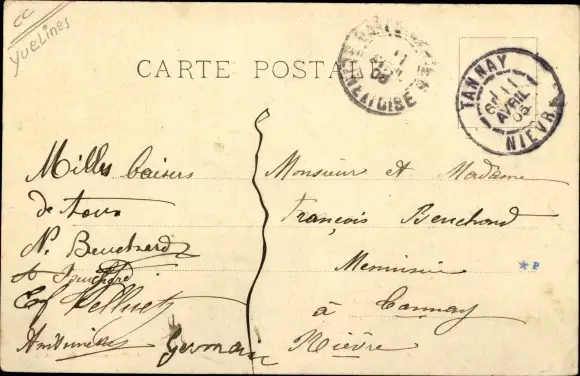 cc
Yvelines
CARTE POSTALE
TANNAY
6E 11
AVRIL
05
NIEVRE
11
OISE
Milles baisers
de tous
N. Beuchard
Germain
Monsieur et Madame
François Beuchard
Menuisier
à Tannay
Nièvre
★ P